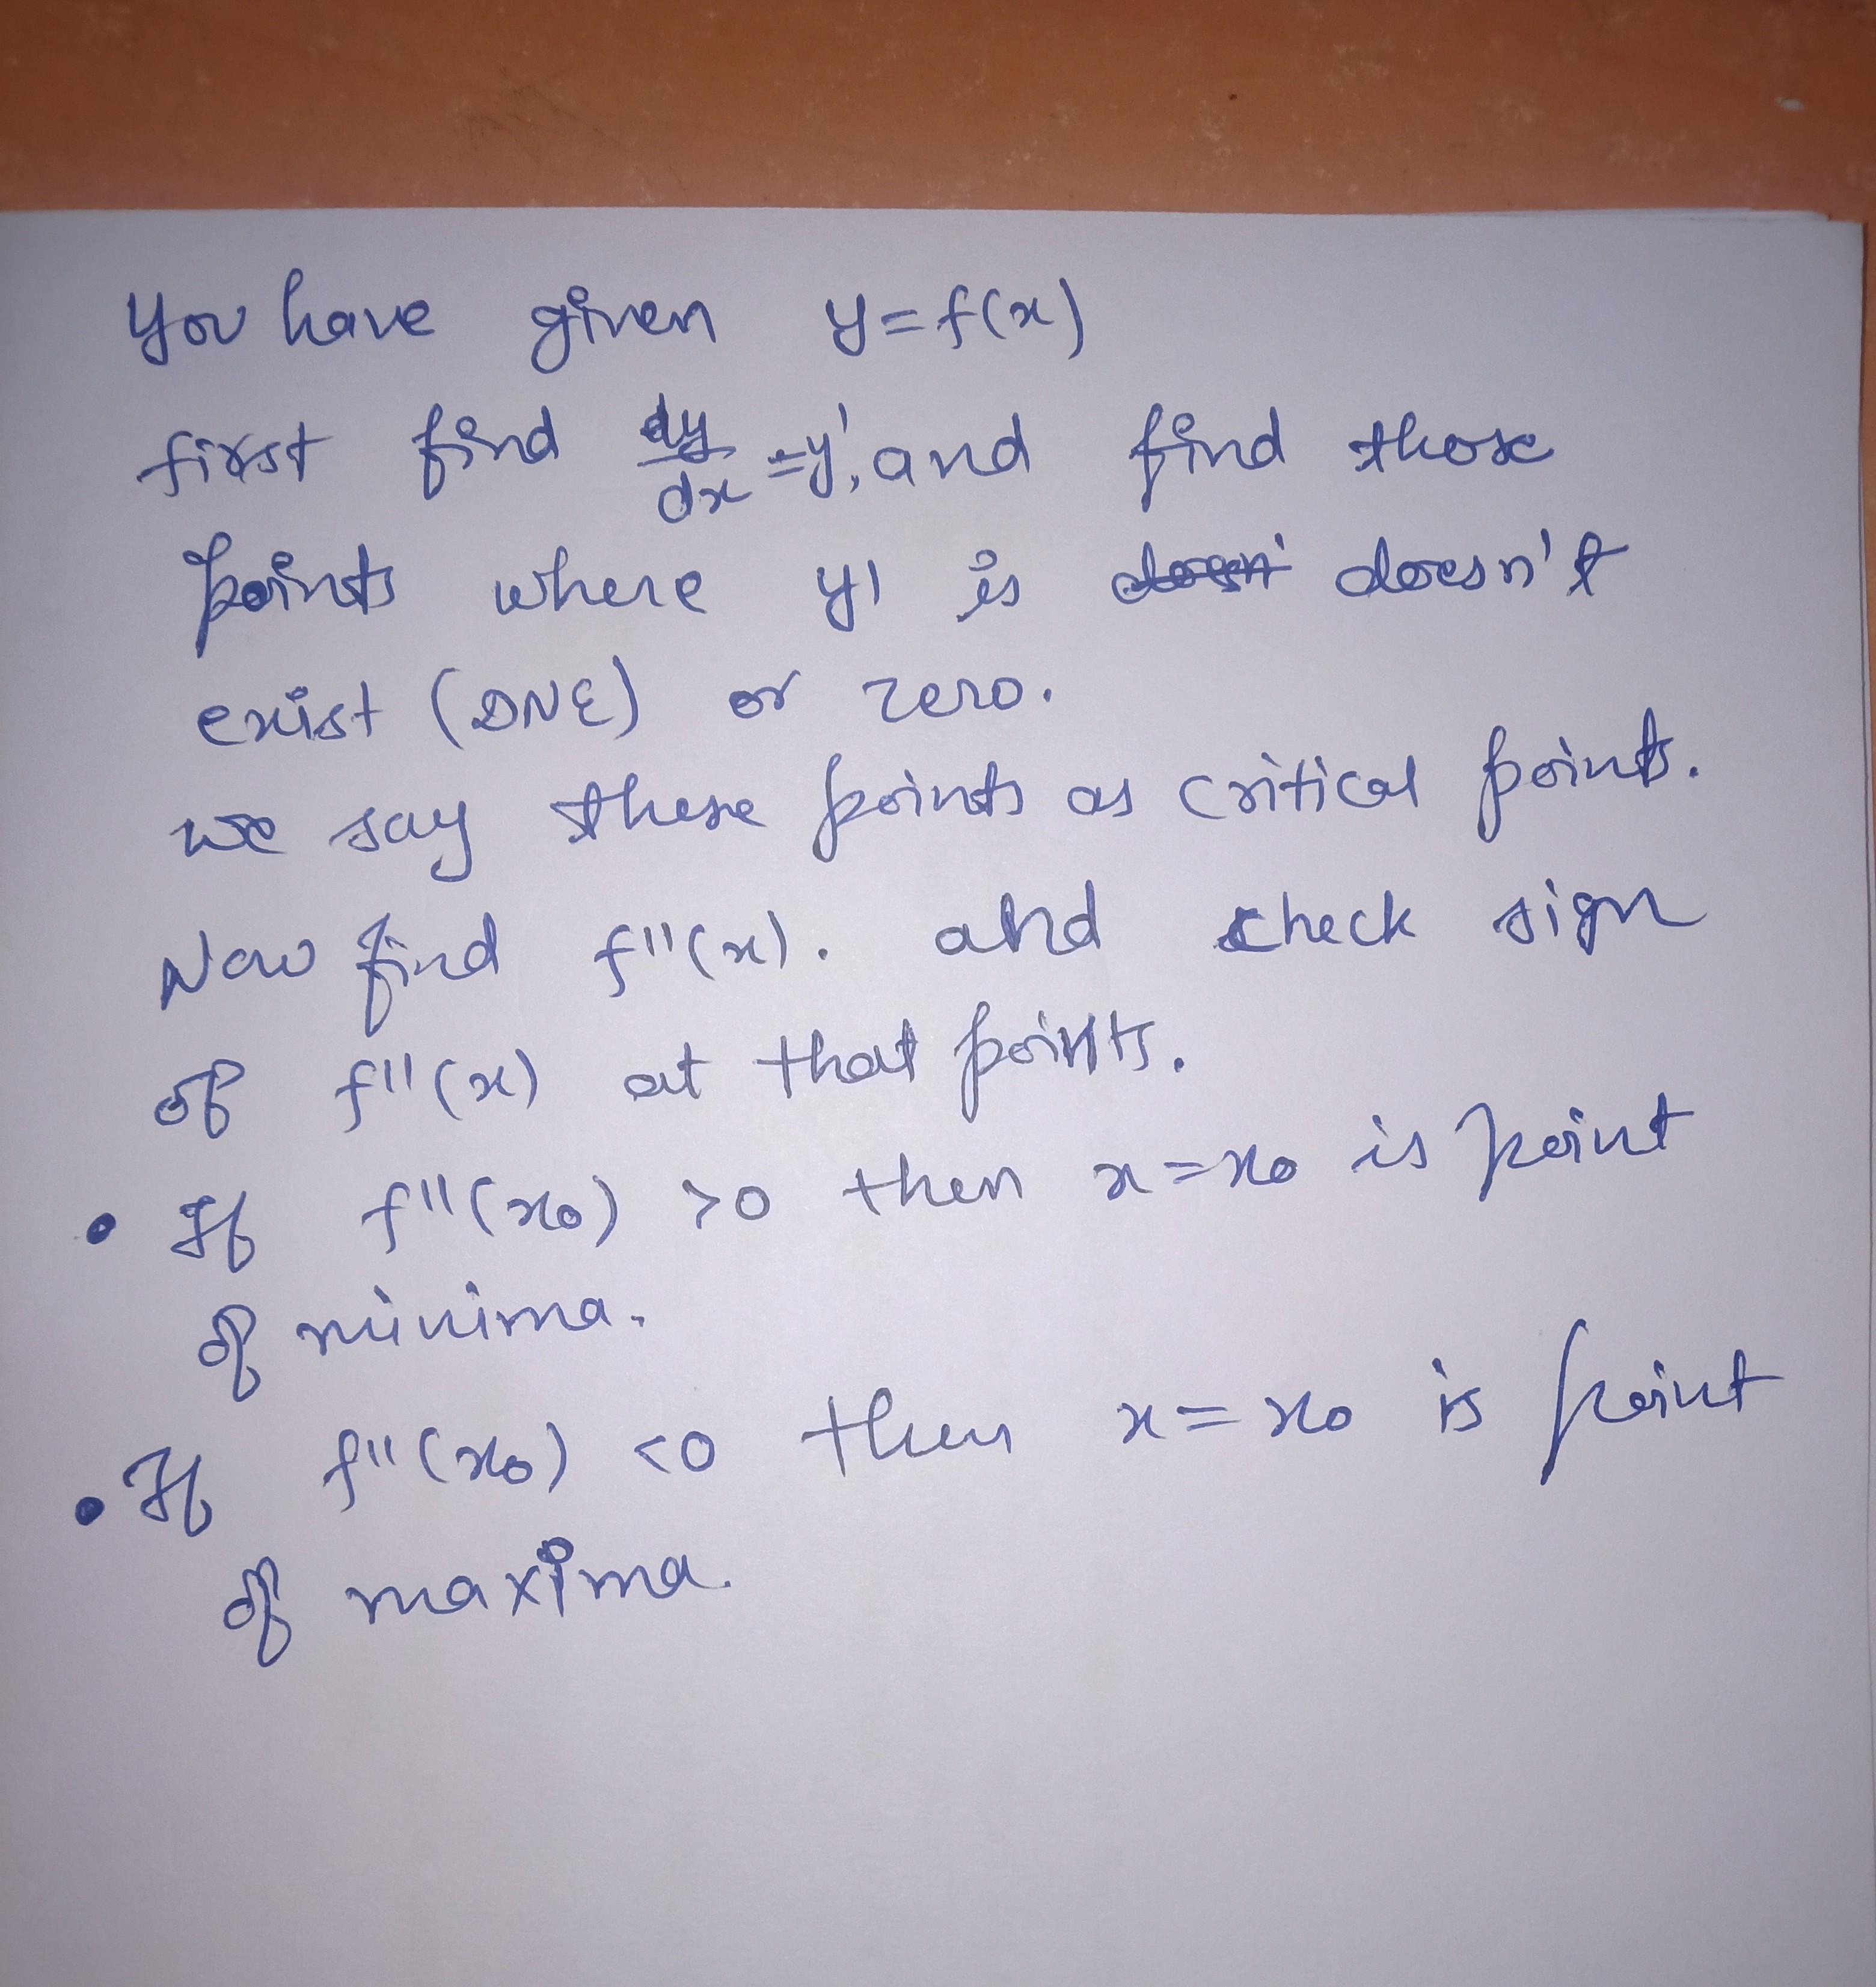 You have given y=f(x)
first find dy/dx =y', and find those
points where y' is doesn't
exist (DNE) or zero.
we say these points as critical points.
Now find f''(x). and check sign
of f''(x) at that points.
• If f''(x0) >0 then x=x0 is point
of minima.
• If f''(x0) <0 then x=x0 is point
of maxima.